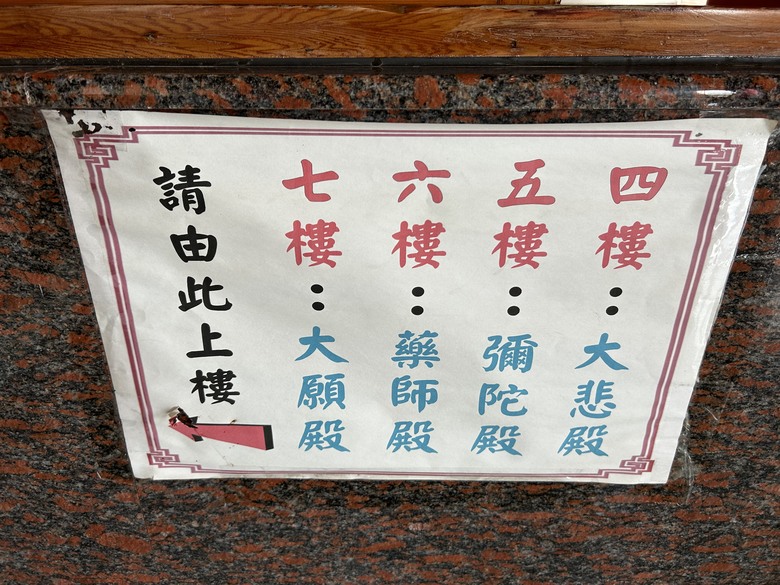 四樓：大悲殿
五樓：彌陀殿
六樓：藥師殿
七樓：大願殿
請由此上樓